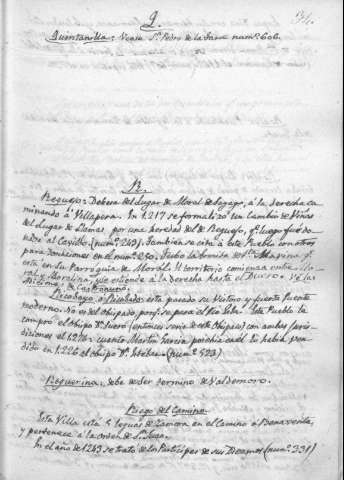 Q.
Quintanilla: Vease Sn. Pedro de la Nave num.º 606.
R.
Requejo: Debera del Lugar de Moral de Sayago, á la derecha ca
minando á Villapera. En 1.217 se formalizó un Cambio de Viñas
del Lugar de por una heredad del de Requejo, qe. luego fué do
nde al Cavildo (num.º 249). Tambien se cita á este Pueblo con otros
para donaciones en el num.º 230. Hubo la hermita de Sta. qe.
está en su Parroquia de Moral: el territorio comienza entre Mo
ral y Moralina, que estiende á la derecha hasta el Duero.
Ricobayo, ó Ricobado: esta pasado su Vistivo y fuerte puente
moderno. No es del obispado, por qe. se pasa el rio Esla. Este Pueblo le
compró el obispo Dn. Suero (entonces seria de este Obispado) con
diciones el 1270: cuanto Martin Garcia posehia en el le habia ven
dido en 1.226 el obispo Dn. Esteban (num.º 523)
Reguerina: debe de ser termino de Valdemoro.
Riego del Camino.
Esta Villa está 5 leguas de Zamora, en el camino á Benavente,
y pertenece á la orden de Sn. Juan.
En el año de 1243 se trató de los Participes de sus Diezmos (num.º 331)